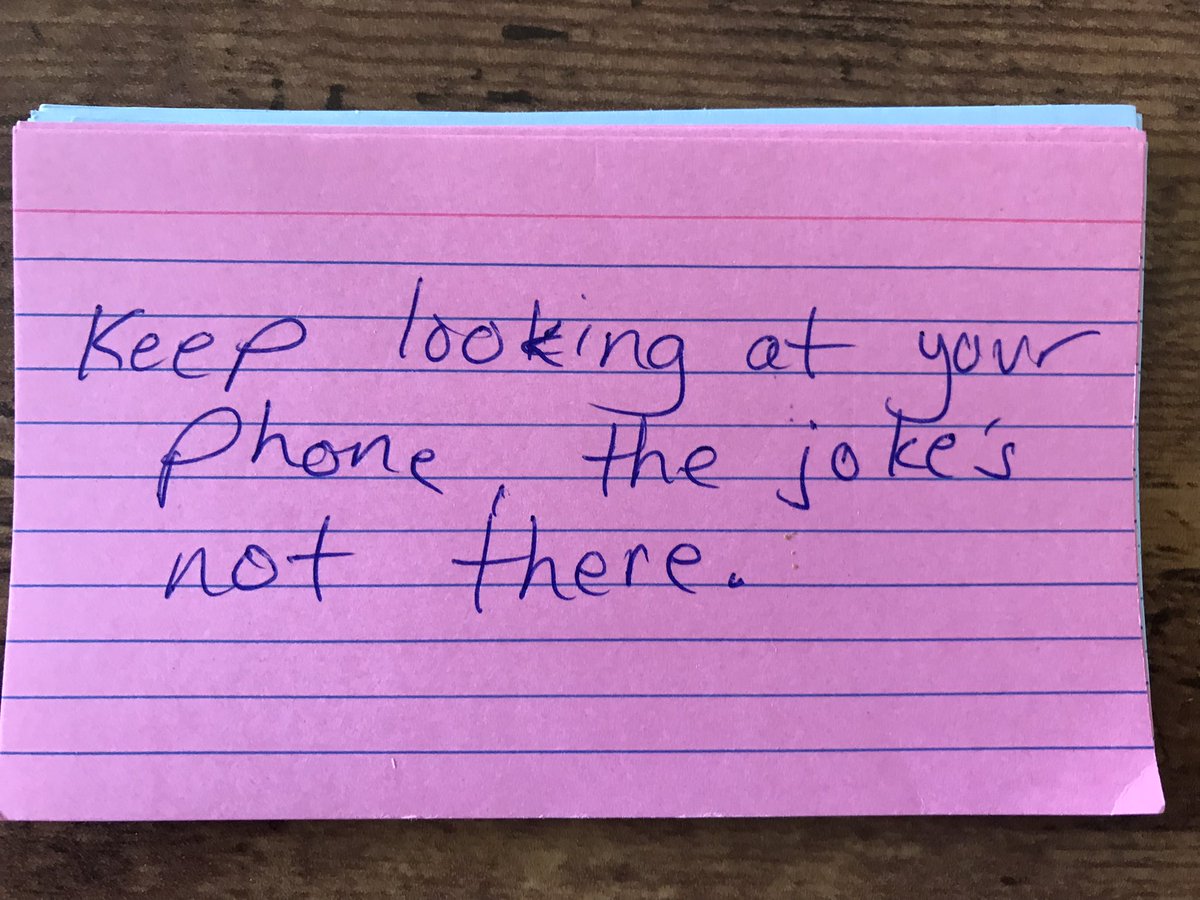 Keep looking at your
phone, the joke's
not there.